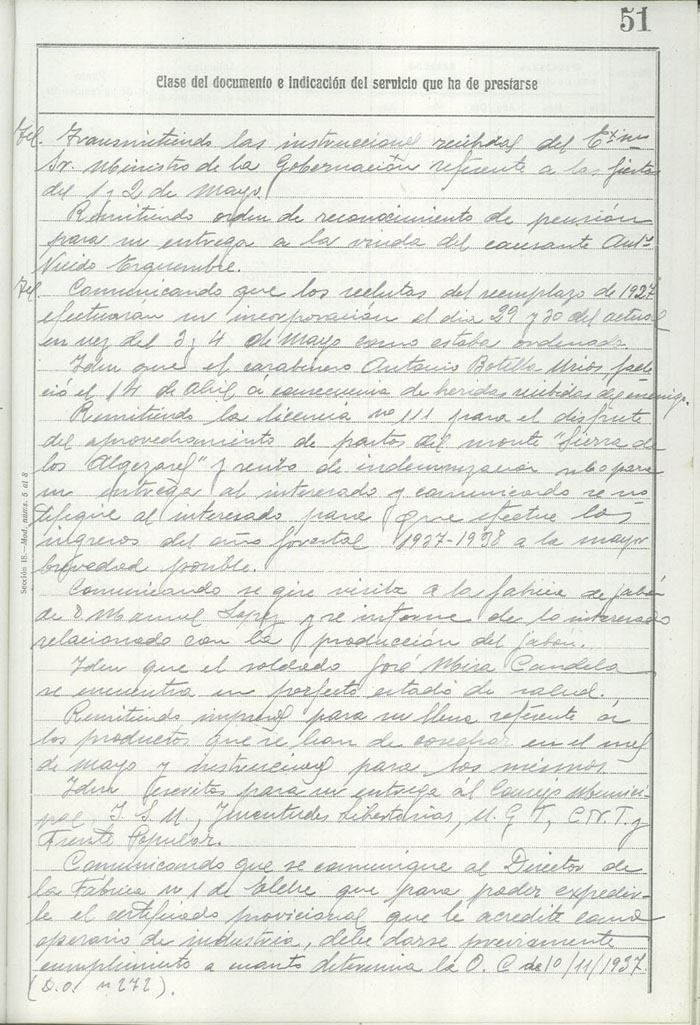 51
Clase del documento e indicación del servicio que ha de prestarse
Tel. Transmitiendo las instrucciones recibidas del Exmo
Sr. Ministro de la Gobernación referente a las fiestas
del 1 y 2 de Mayo.
Remitiendo orden de reconocimiento de pensión
para su entrega a la viuda del causante Antº
Tel. Comunicando que los reclutas del reemplazo de 1927
efectuarán su incorporación el dia 29 y 30 del actual
en vez del 3 y 4 de Mayo como estaba ordenado.
Idem que el carabinero Antonio Botella Urios falle
ció el 14 de Abril a consecuencia de heridas recibidas del enemigo.
Remitiendo la licencia nº 111 para el disfrute
del aprovechamiento de pastos del monte "Sierra de
los Algezares" y recibo de indemnización para
su entrega al interesado y comunicando se no
tifique al interesado para que efectue los
ingresos del año forestal 1937-1938 a la mayor
brevedad posible.
Comunicando se gire visita a la fabrica de jabón
de D Manuel Lopez y se informe de lo interesado
relacionado con la producción del jabón.
Idem que el soldado José Mira Candela
se encuentra en perfecto estado de salud.
Remitiendo impresos para su llena referente a
los productos que se han de cosechar en el mes
de Mayo y instrucciones para los mismos.
Idem escritos para su entrega al Consejo Munici-
pal, J. S. U., Juventudes Libertarias, U. G. T, C.N.T. y
Frente Popular.
Comunicando que se comunique al Director de
la Fabrica nº 1 de Elche que para poder expedir-
le el certificado provicional que le acredite como
operario de industria, debe darse previamente
cumplimiento a cuanto determina la O. C de 10/11/1937.
(D.O. nº 272).
Sección 18.—Mod. nums. 5 al 8